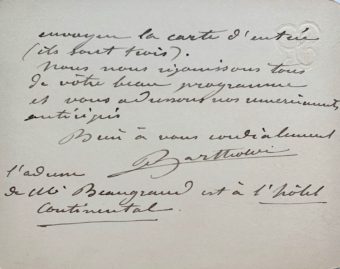 envoyer la carte d'entrée
(ils sont trois).
Nous nous réjouissons tous
de votre beau programme
et vous adressons nos remerciements
anticipés
Bien à vous cordialement
Bartholdi
l'adresse
de Mr Beaugrand est à l'hôtel
Continental.